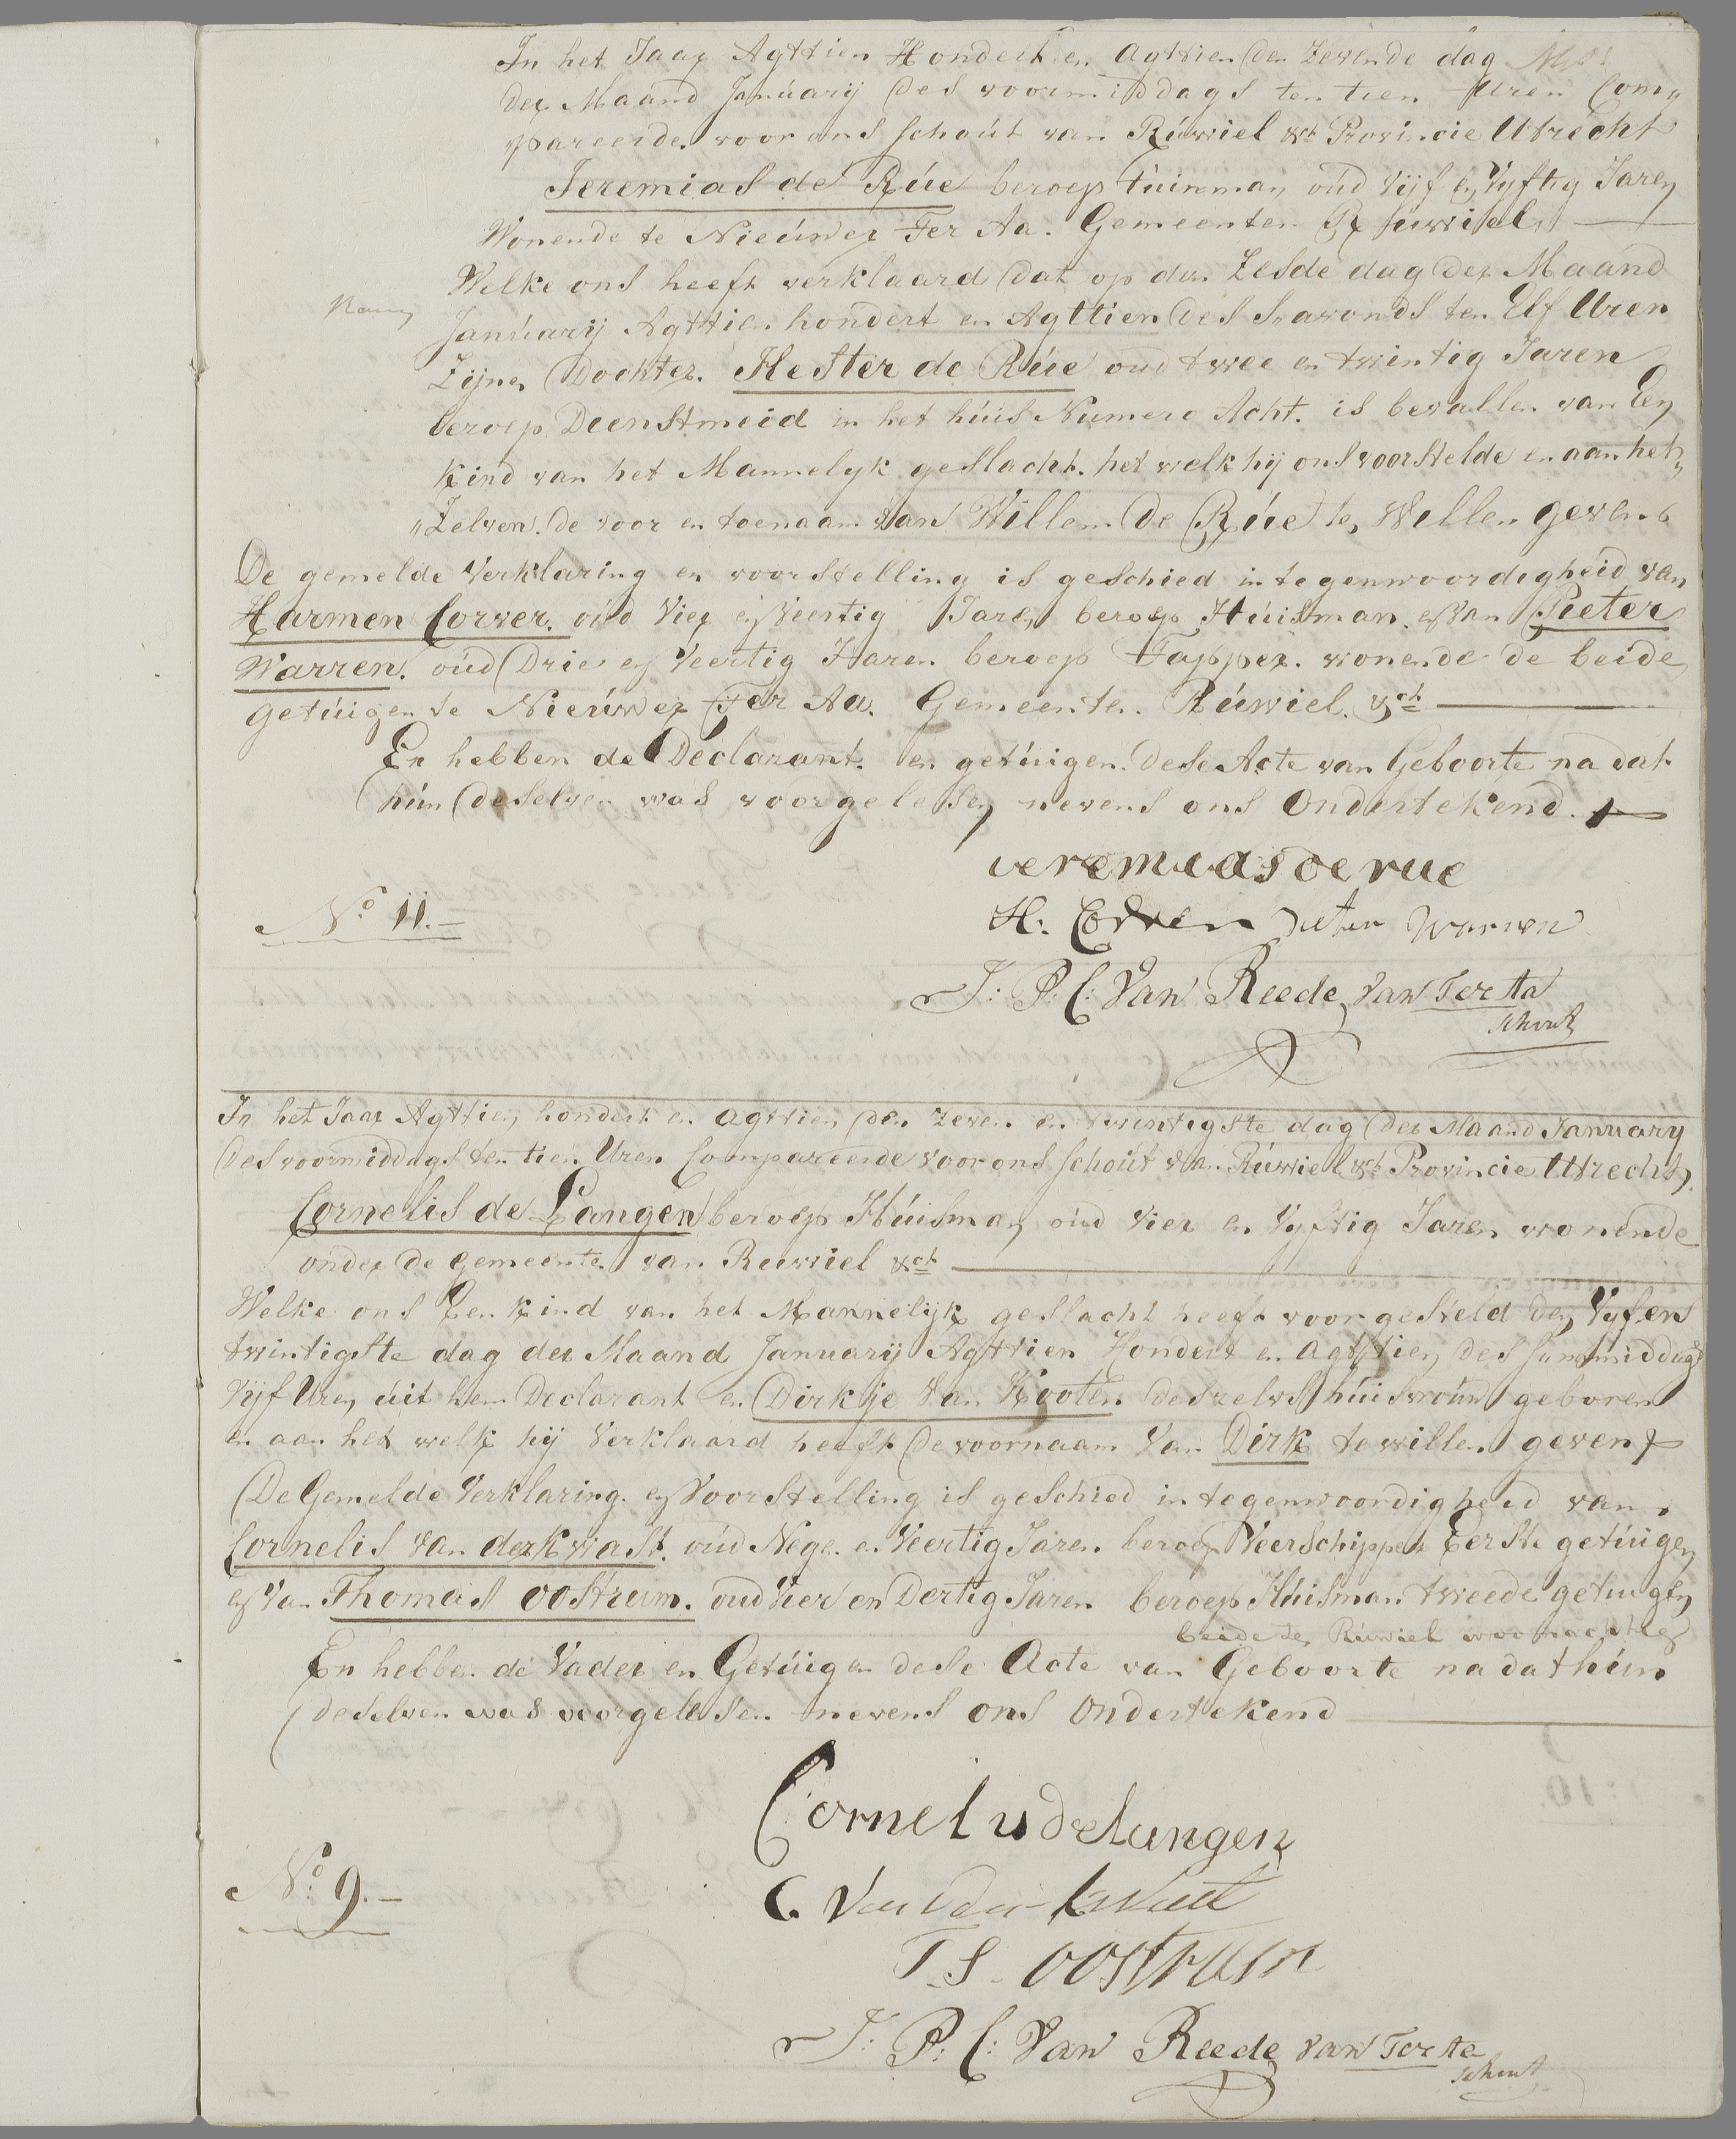 In het Jaar Agttien Hondert en Agttien den Zevende dag
der Maand Januarij des voormiddags ten tien Uren Com,,
pareerde voor ons Schout van Rúwiel &ct Provincie Utrecht
Jeremias de Rúe beroep túinman oúd Vijf en Vyftig Jaren
Wonende te Nieúwer Ter Aa. Gemeenten Rúwiel.
Welke ons heeft verklaard dat op den Zesde dag der Maand
Janúarij Agttien hondert en Agttien des s,avonds ten Elf Uren
Zijne Dochter. Hester de Rúe oud twee en twintig Jaren
beroep Dienstmeid in het húis Numero Acht. is bevallen van Een
Kind van het Mannelyk geslacht. het welk hij ons voorstelde en aan het,,
,,Zelven. de voor en toenaam van Willem de Rúe te Willen geven.
De gemelde Verklaring en voorstelling is geschied in tegenwoordigheid van
Harmen Corver. oúd Vier en Veertig Jaren beroep Húisman. en van Pieter
Warren. oúd Drie en Veertig Jaren beroep Tapper. wonende de beide
getúigen te Nieúwer Ter Aa. Gemeenten. Rúwiel. &ct
En hebben de Declarant. en getúigen. dese Acte van Geboorte na dat
hún deselven was voorgelesen nevens ons Ondertekend.
jeremias de rue
No 11.-
H. Corver Pieter Warren
J: P: C: Van Reede van Ter Aa
Schout
In het Jaar Agttien hondert en Agttien den Zeven en twintigste dag der Maand January
des voormiddags ten tien Uren Compareerde voor ons Schoút van Rúwiel &ct Provincie Utrecht,
Cornelis de Langen beroep Húisman oúd Vier en Vyftig Jaren wonende
onder de gemeente van Ruwiel &ct
Welke ons Een Kind van het Mannelijk geslacht heeft voorgesteld den Vyfen
twintigste dag der Maand Januarij Agttien Hondert en Agttien des s,namiddags
Vijf Uren úit hem Declarant en Dirkje Van Kooten deszelvs húisvroúw geboren
en aan het welk hij Verklaard heeft de voornaam Van Dirk te willen geven
De Gemelde Verklaring en Voorstelling is geschied in tegenwoordigheid van
Cornelis van der Kwast. oúd Negen en Veertig Jaren beroep Veerschipper Eerste getúigen
en Van Thomas Oostrum. oud Vier en Dertig Jaren beroep Húisman tweede getuigen
beide te Rúwiel woonachtig
En hebben de Vader en Getúigen dese Acte van Geboorte na dat hún
deselven was voorgelesen nevens ons Ondertekend
Cornelis de langen
No 9.-
C. Van der Kwast
T.S. oostrum
J: P: C: Van Reede van Ter Aa
Schout